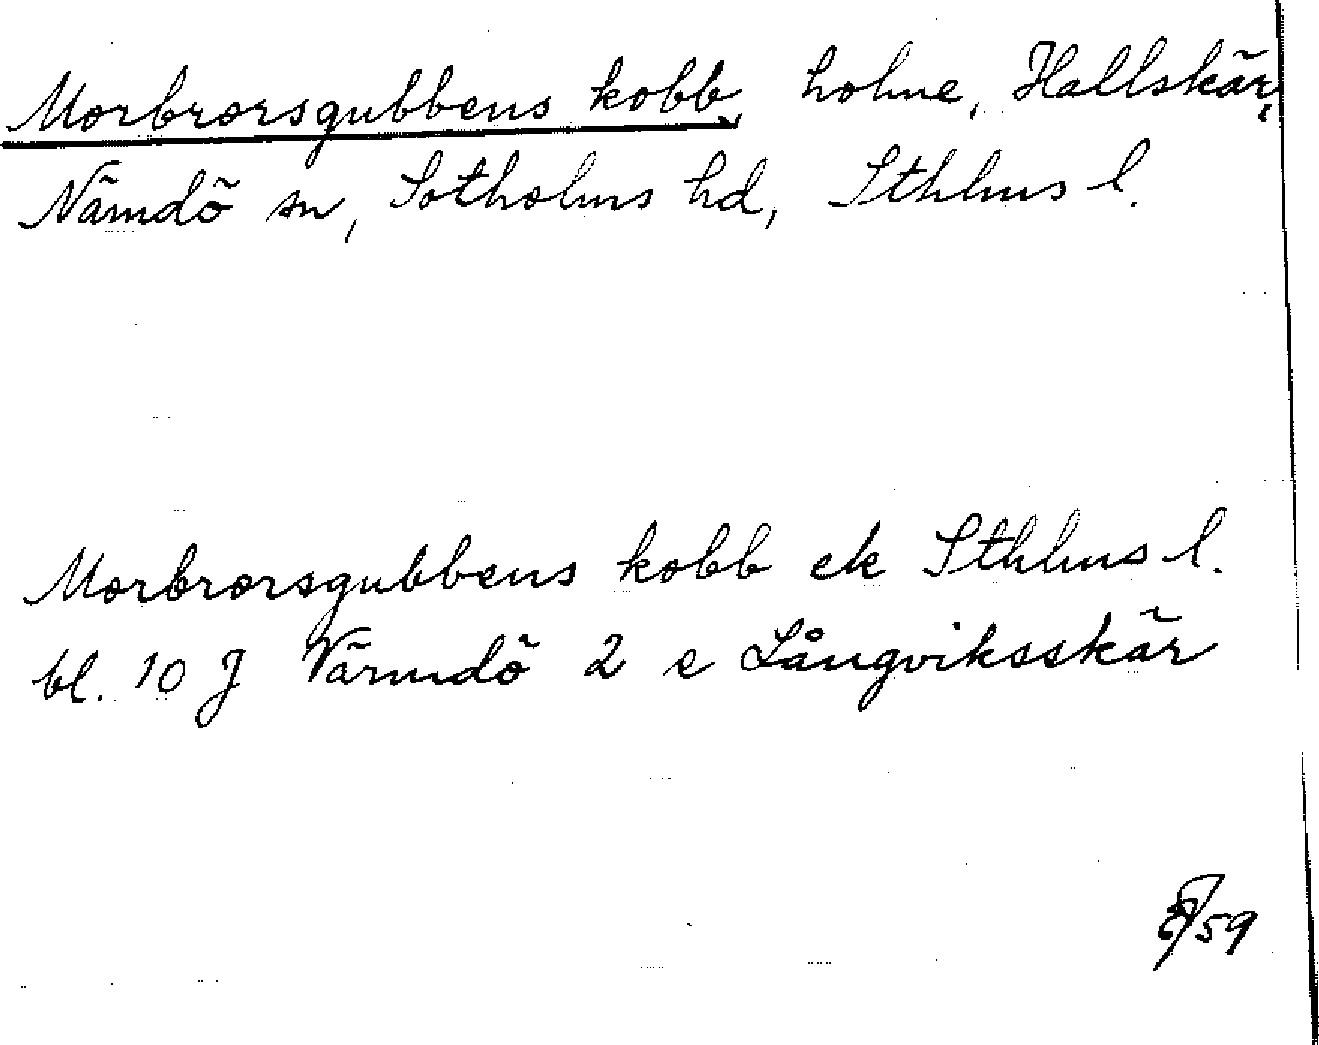 Morbrorsgubbens kobb, holme, Hallskär,
Nämdö sn, Sotholms hd, Sthlms l.
Morbrorsgubbens kobb ek Sthlms l.
bl. 10 J Värmdö 2 s Långviksskär
/59